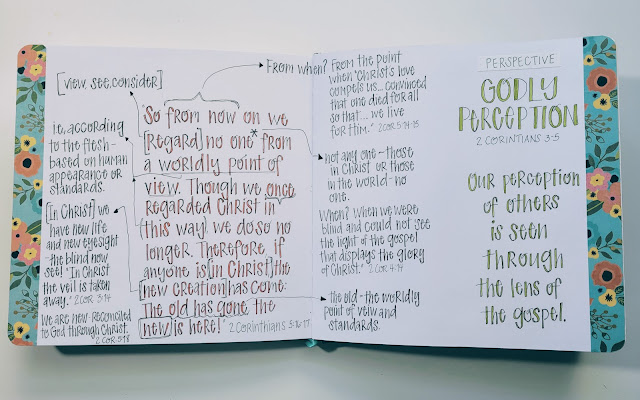 [view, see, consider]
i.e. according
to the flesh-
based on human
appearance or
standards.
[In Christ] we
have new life
and new eyesight
-the blind now
see! "In Christ
the veil is taken
away." 2 Cor. 3:14
We are new-reconciled
to God through Christ.
2 Cor. 5:18
"So from now on we
[regard] no one* from
a worldly point of
view. Though we once
regarded Christ in
this way, we do so no
longer. Therefore, if
anyone is [in Christ], the
new creation has come:
The old has gone the
new is here!" 2 Corinthians 5:16-17
From when? From the point
when "Christ's love
compels us... convinced
that one died for all
so that... we live
for Him." 2 Cor. 5:14-15
*not any one-those
in Christ or those
in the world-no
one.
When? When we were
blind and could not see
the light of the gospel
that displays the glory
of Christ." 2 Cor. 4:4
the old-the worldly
point of veiw and
standards.
PERSPECTIVE
GODLY
PERCEPTION
2 CORINTHIANS 3-5
Our perception
of others
is seen
through
the lens of
the gospel.